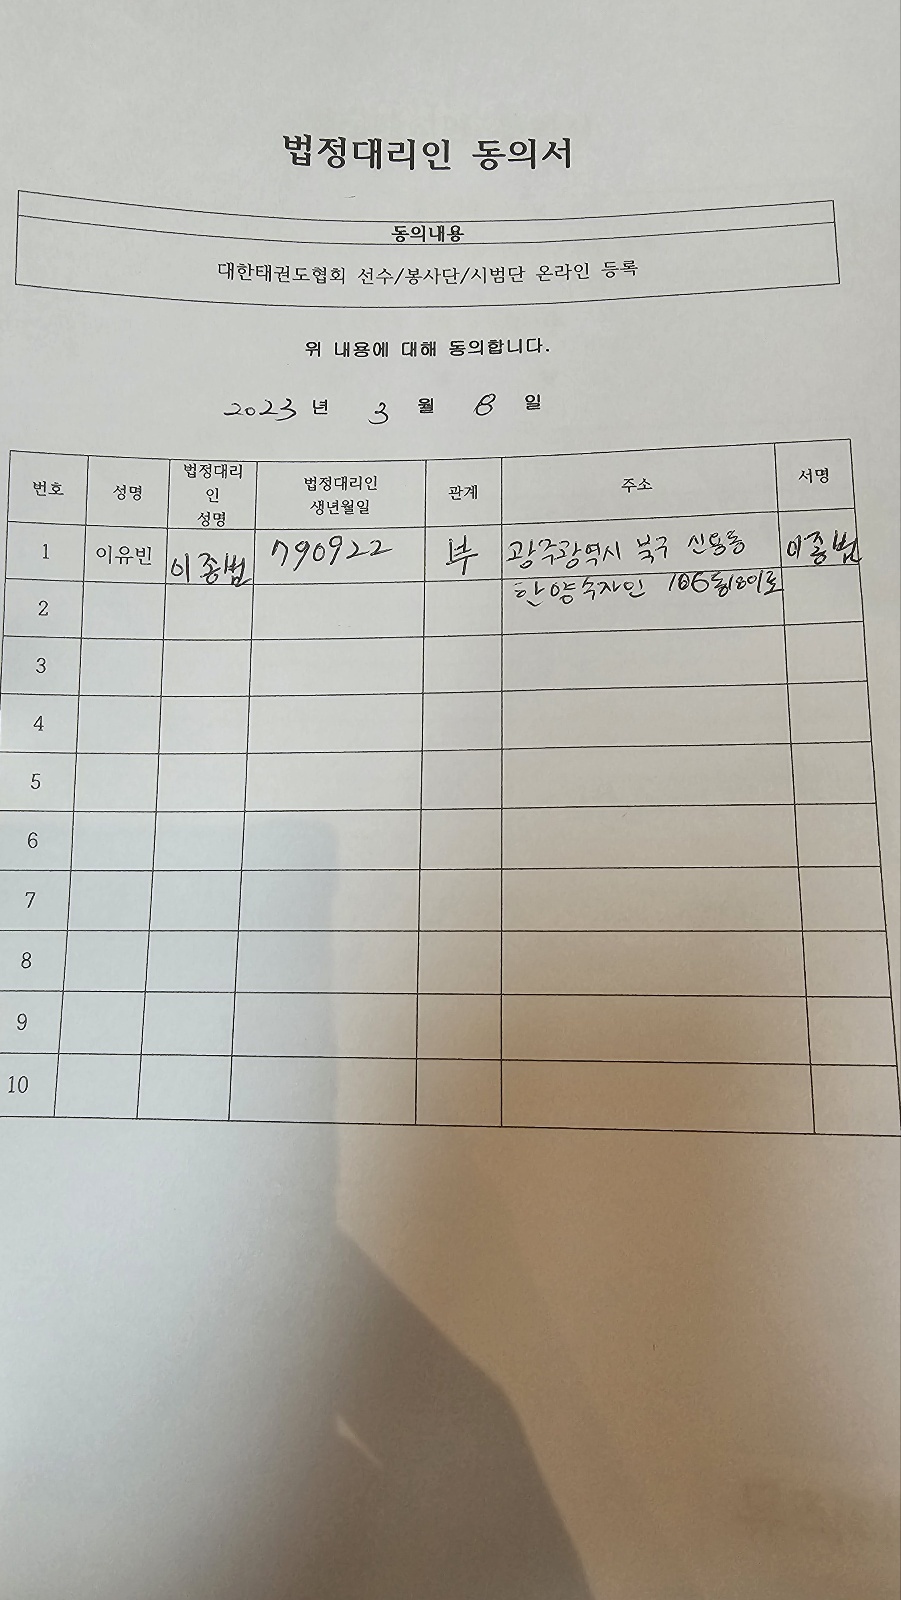 법정대리인 동의서
동의내용
대한태권도협회 선수/봉사단/시범단 온라인 등록
위 내용에 대해 동의합니다.
2023 년 3 월 8 일
번호 성명 법정대리인 성명 법정대리인 생년월일 관계 주소 서명
1 이유빈 이종범 790922 부 광주광역시 북구 신용동 이종범
한양수자인 106동1801호
2
3
4
5
6
7
8
9
10